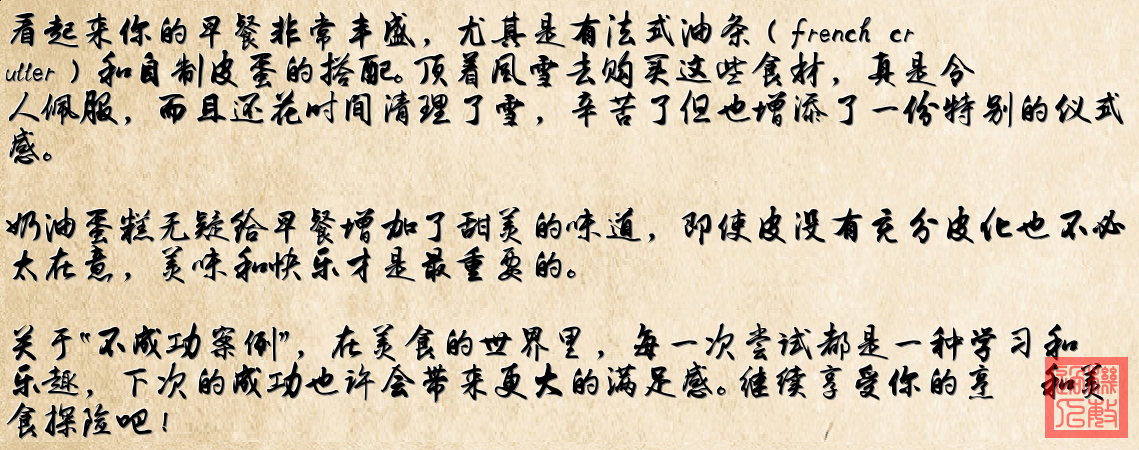 看起来你的早餐非常丰盛，尤其是有法式油条（french cr
utler）和自制皮蛋的搭配。顶着风雪去购买这些食材，真是令
人佩服，而且还花时间清理了雪，辛苦了但也增添了一份特别的仪式
感。
奶油蛋糕无疑给早餐增加了甜美的味道，即使皮没有充分皮化也不必
太在意，美味和快乐才是最重要的。
关于“不成功案例”，在美食的世界里，每一次尝试都是一种学习和
乐趣，下次的成功也许会带来更大的满足感。继续享受你的烹 和美
食探险吧！